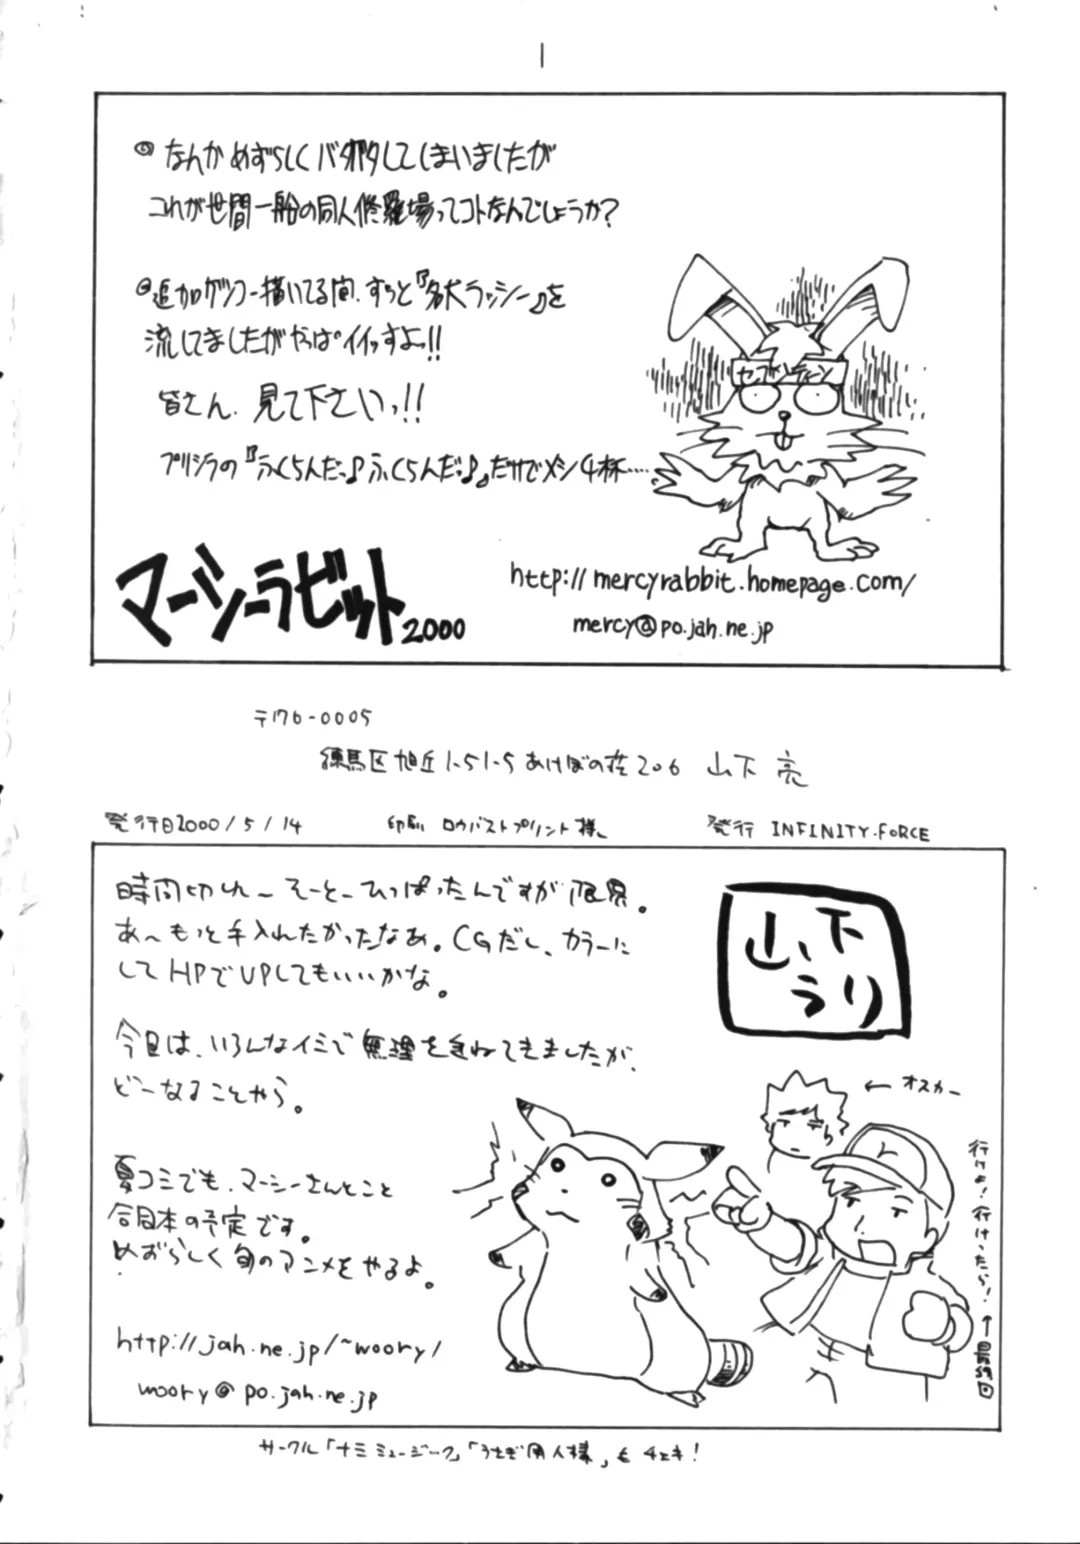 なんかめずらしくバタバタしてしまいましたが
これが世間一般の同人修羅場ってコトなんでしょうか?
追加ゲンコー描いてる間、ずっと『名犬ラッシー』を
流してましたがやっぱイイっすよっ!!
皆さん、見て下さいっ!!
プリシラの『ふくらんだっ♪ふくらんだ♪』だけでメシ4杯……
セブンティーン
マーシーラビット2000
http://mercyrabbit.homepage.com/
mercy@po.jah.ne.jp
〒176-0005
練馬区旭丘1-51-5あけぼの荘206 山下 亮
発行日2000/5/14 印刷 ロウバストプリント様 発行 INFINITY.FORCE
時間切れ〜そーとーひっぱったんですが限界。
あ〜もっと手入れたかったなあ。CGだし、カラーに
してHPでUPしてもいいかな。
今回は、いろんなイミで無理を重ねてきましたが、
どーなることやら。
夏コミでも、マーシーさんとこと
合同本の予定です。
めずらしく旬のアニメをやるよ。
http://jah.ne.jp/~woory/
woory@po.jah.ne.jp
山下
うり
←オスカー
行けよ!行けったら!
↑最終回
サークル「ナミミュージーク」「うさぎ同人様」もチェキ!